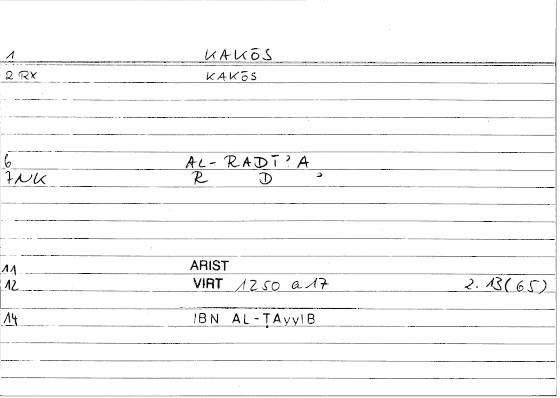 1 KAKŌS
2 RX KAKŌS
6 AL-RADĪʾA
7NK R D ʾ
11 ARIST
12 VIRT 1250 a 17 2. 13(65)
14 IBN AL-ṬAyyIB